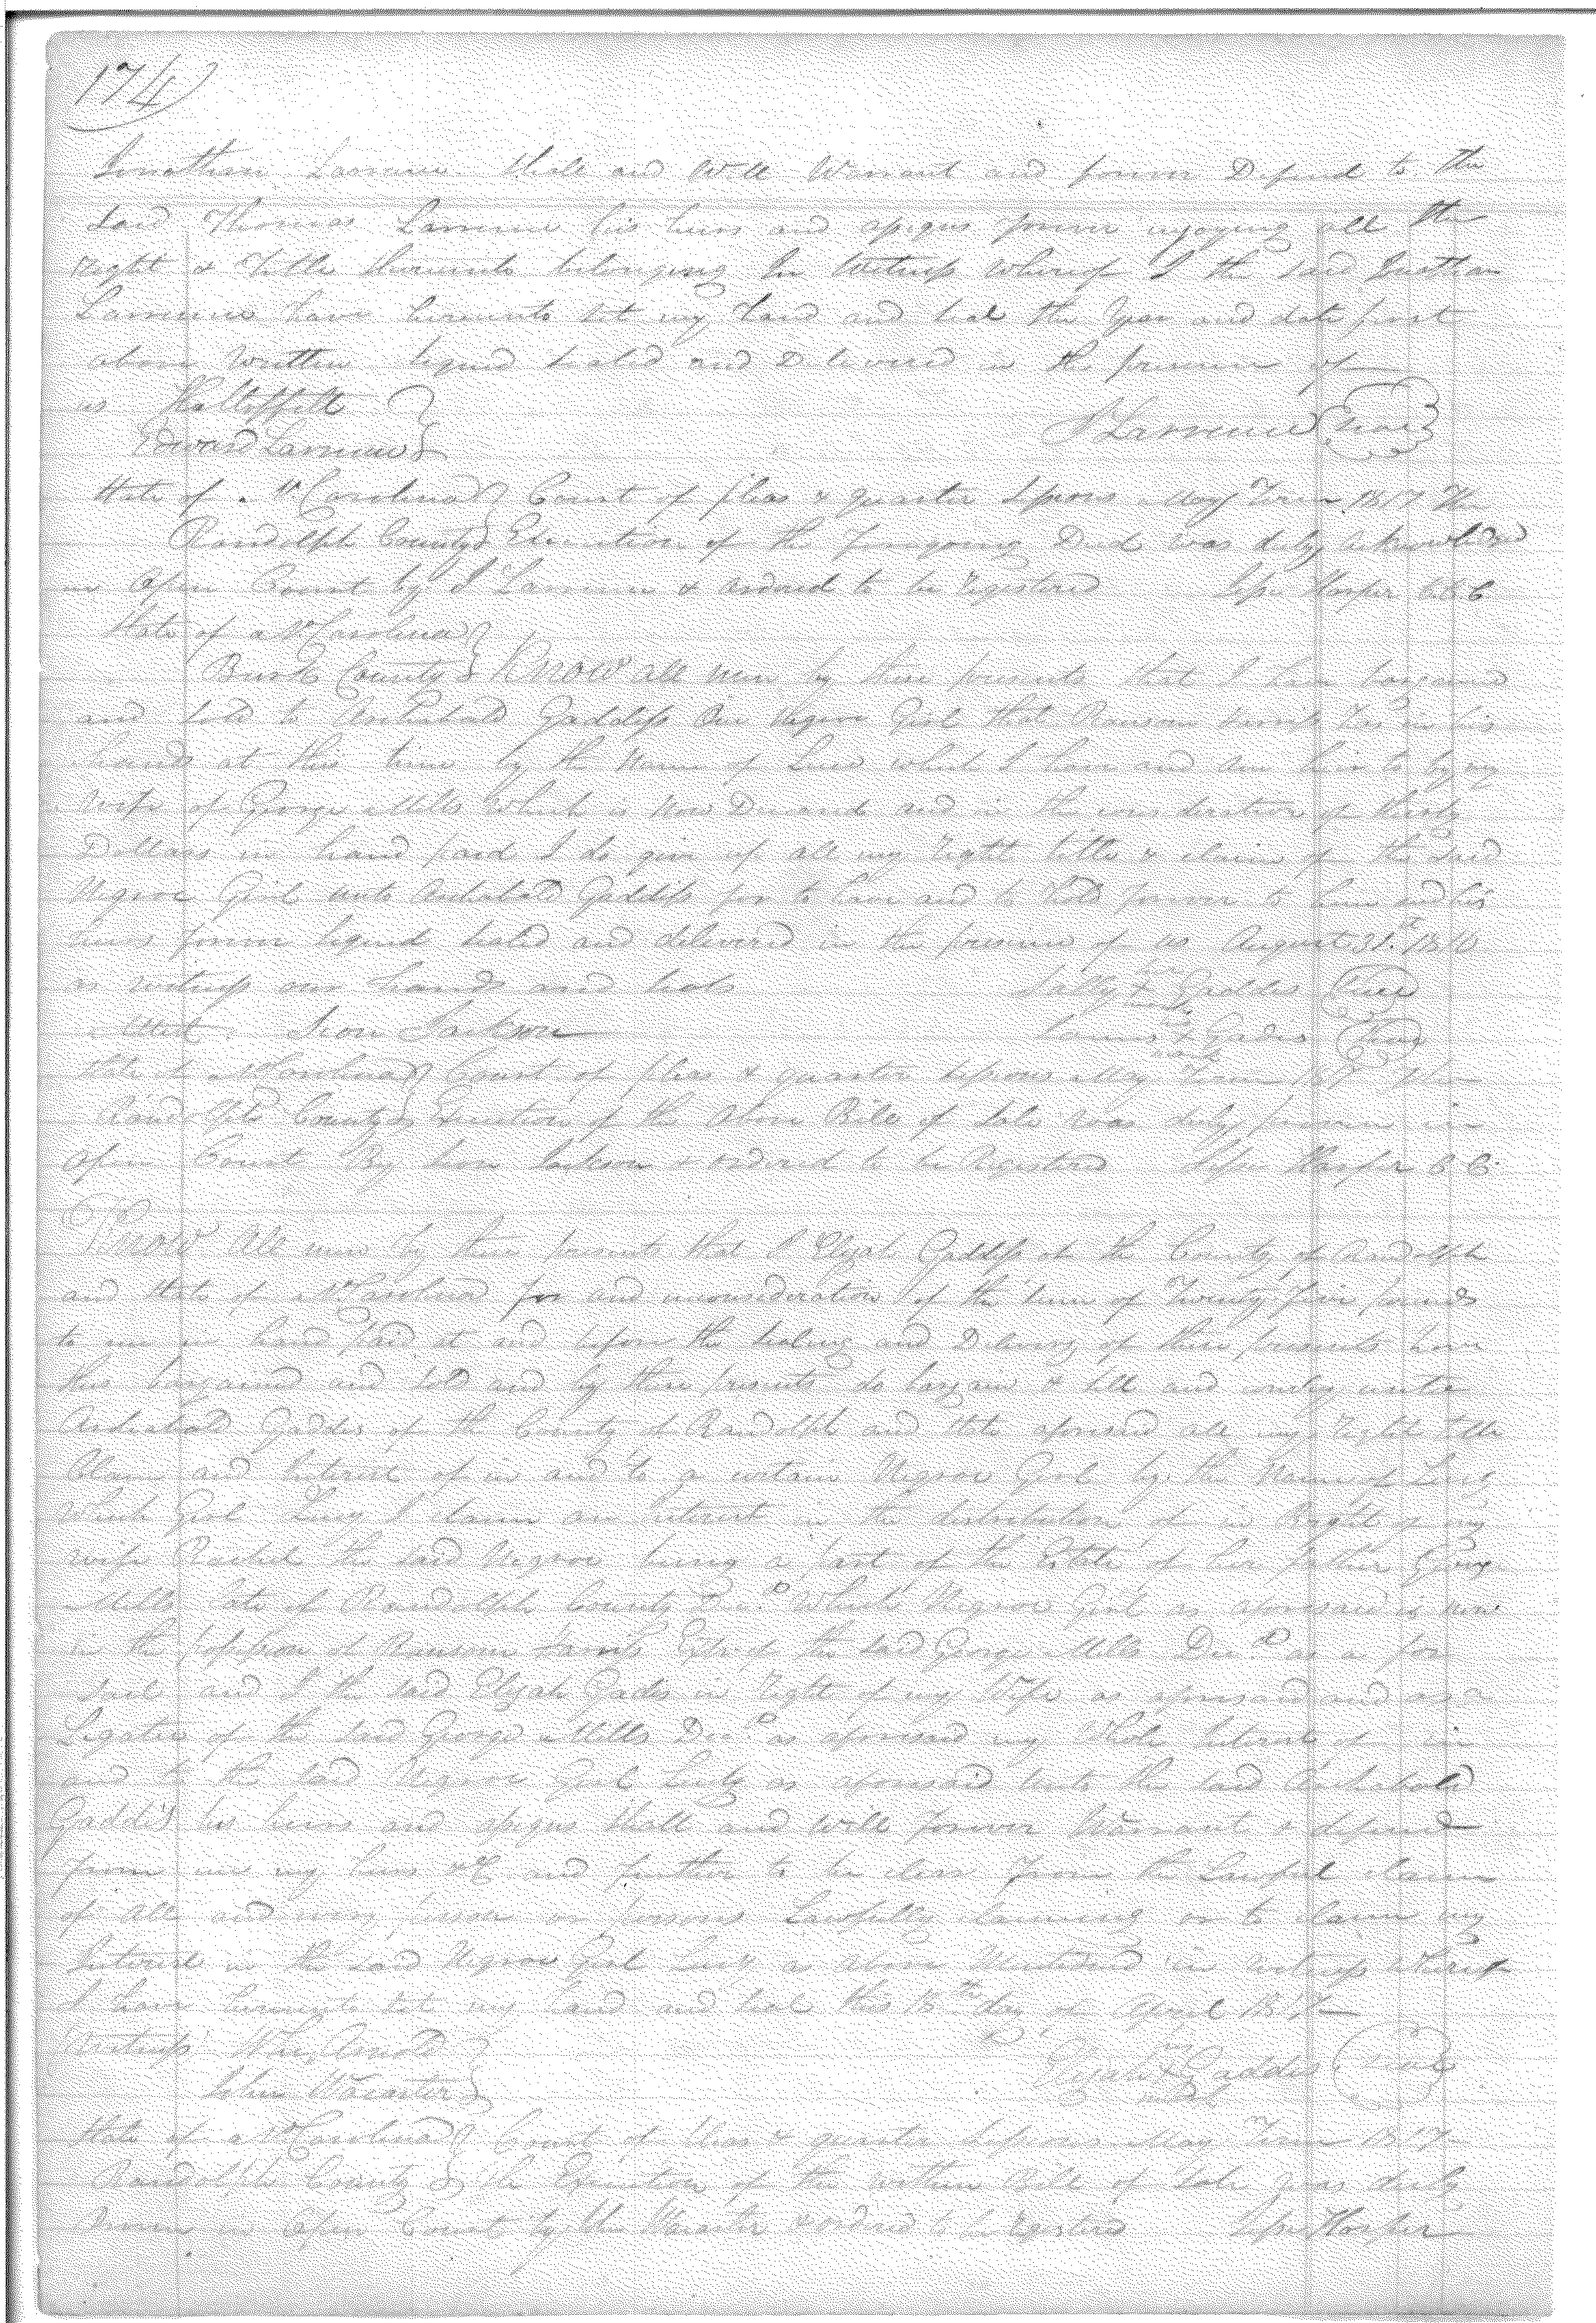 174
Jonathan Lawrence Shall and Will Warrant and forever Defend to the
Said Thomas Lawrence his heirs and assigns forever injoying all the
right & Title thereunto belonging In Witness Whereof I the said Jonathan
Lawrence have hereunto set my hand and Seal the Year and date first
above Written Signed Sealed and Delivered in the presence of
us
Edward Lawrence
J Lawrence Seal
State of N Carolina Court of pleas & quarter Sessions May Term 1817 The
Randolph County Execution of the Foregoing Deed was duly acknowledged
in Open Court by J Lawrence & ordered to be registered Jesse Harper C.C.C
State of N Carolina
Burk County Know all men by these presents that I have bargained
and Sold to Archabald Gaddiss One Negroe Girl that Ransom has in his
hands at this time by the Name of Luce which I have and am heir to by my
Wife of George Mills Which is Now Deceased and in the consideration of thirty
Dollars in hand paid I do give up all my right title & claim of the said
Negroe Girl unto Archabald Gaddiss for to have and to Hold forever to him and his
heirs forever Signed Sealed and delivered in the presence of us August 31st 1816
as witness our hands and Seals
Sally her x mark Gaddis Seal
Attest Sion Jackson
his x mark Gadis Seal
State of N Carolina Court of pleas & quarter Sessions May Term 1817 The
Randolph County Execution of the above Bill of Sale was duly proven in
Open Court By Sion Jackson & ordered to be Registered Jesse Harper C.C.
Know All men by these presents that I Elijah Gaddiss of the County of Randolph
and State of N Carolina for and inconsideration of the sum of Twenty Five pounds
to me in hand Paid at and before the Sealing and Delivery of these presents have
this bargained and Sold and by these presents do bargain & Sell and convey unto
Archabald Gaddis of the County of Randolph and State aforesaid all my Right Title
Claim and Interest of in and to a certain Negroe Girl by the Name of Lucy
Which Girl Lucy I claim an interest in the distribution of in Right of my
wife Rachel the said Negroe being a part of the Estate of her father George
Mills late of Randolph County Dec.d Which Negroe Girl as aforesaid is now
in the possession of Ransom of the said George Mills Dec.d as a for
said and I the said Elijah Gadis in Right of my Wife as aforesaid and as a
Legatee of the said George Mills Dec.d as aforesaid my Whole Interest of in
and to the said Negroe Girl Lucy as aforesaid unto the said Archabald
Gaddis his heirs and assigns shall and will forever Warrant & defend
from me my heirs &C and further to be clear from the Lawful claim
of all and every person or persons Lawfully claiming or to claim my
Interest in the said Negroe Girl Lucy as above Mentioned in witness Whereof
I have hereunto set my hand and seal this 15th day of April 1817
Witness Wm Arnold
Elijah his x mark Gaddis Seal
State of N Carolina Court of Pleas & quarter Sessions May Term 1817
Randolph County The Execution of the within Bill of Sale was duly
Proven in Open Court by & ordered to be registered Jesse Harper